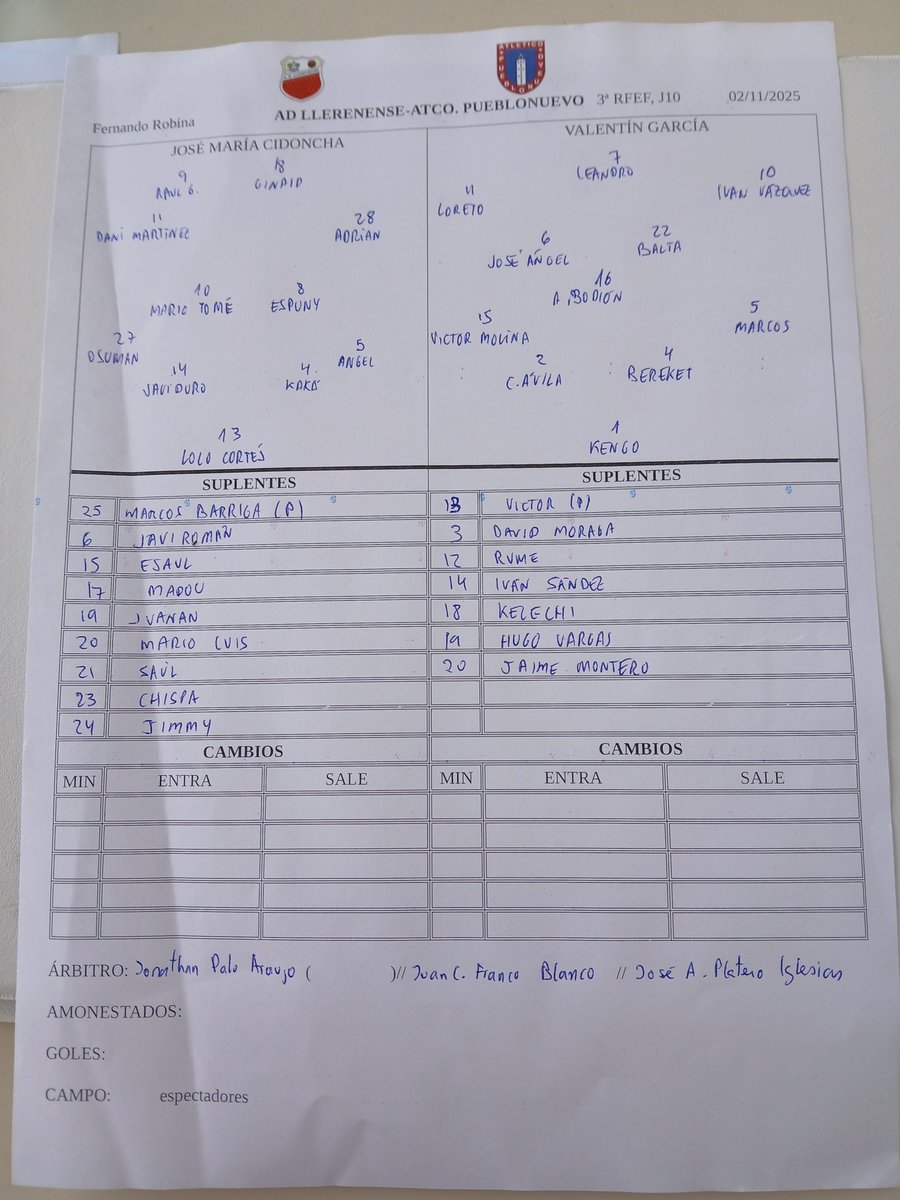 ATLÉTICO PUEBLONUEVO
AD LLERENENSE-ATCO. PUEBLONUEVO 3ª RFEF, J10 02/11/2025
Fernando Robina
JOSÉ MARÍA CIDONCHA
9 18
RAUL G. GINAID
11 28
DANI MARTINEZ ADRIAN
10 8
MARIO TOMÉ ESPUNY
27 5
OSUMAN ANGEL
14 4
JAVI DURO KAKÁ
13
LOLO CORTÉS
VALENTÍN GARCÍA
7
LEANDRO
11 10
LORETO IVAN VÁZQUEZ
6 22
JOSÉ ÁNGEL BALTA
16
A. BODIÓN
15 5
VICTOR MOLINA MARCOS
2 4
C. ÁVILA BEREKET
1
KENGO
SUPLENTES
25 MARCOS BARRIGA (P)
6 JAVI ROMAN
15 ESAUL
17 MADOU
19 JUANAN
20 MARIO LUIS
21 SAÚL
23 CHISPA
24 JIMMY
SUPLENTES
13 VICTOR (P)
3 DAVID MORAGA
12 RUME
14 IVÁN SÁNDEZ
18 KELECHI
19 HUGO VARGAS
20 JAIME MONTERO
CAMBIOS CAMBIOS
MIN ENTRA SALE MIN ENTRA SALE
ÁRBITRO: Jonathan Palo Araujo ( )// Juan C. Franco Blanco // José A. Platero Iglesias
AMONESTADOS:
GOLES:
CAMPO: espectadores